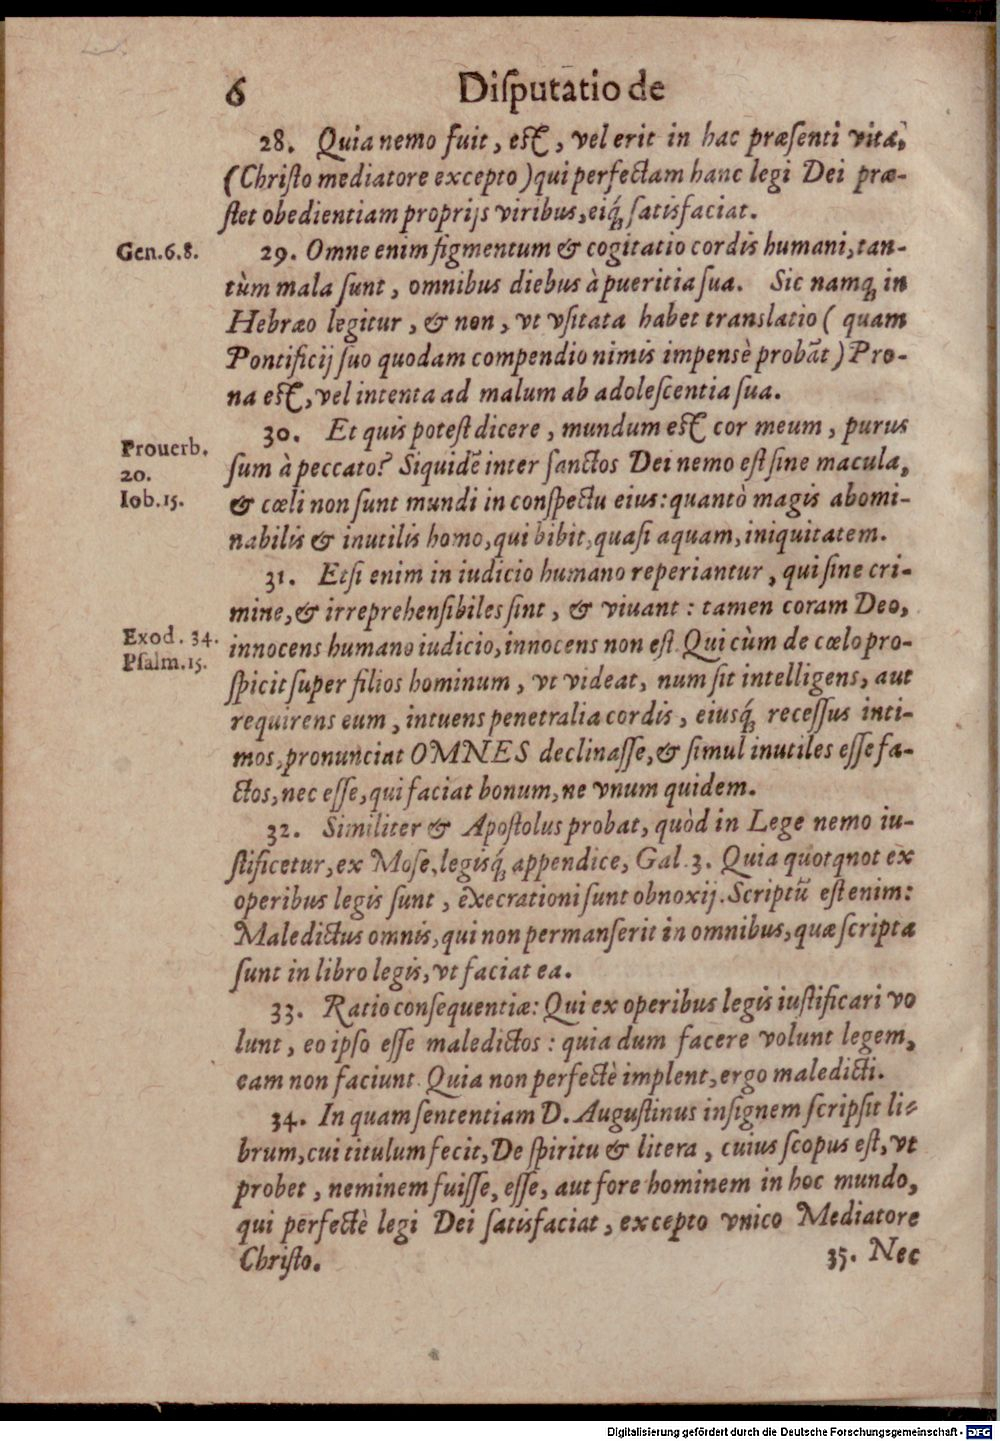 6 Diſputatio de
28. Quia nemo fuit, eſt, vel erit in hac præſenti vita,
(Chriſto mediatore excepto) qui perfectam hanc legi Dei præ-
ſtet obedientiam proprijs viribus, eiq́ꝫ ſatisfaciat.
Gen.6.8.
29. Omne enim figmentum & cogitatio cordis humani, tan-
tùm mala ſunt, omnibus diebus à pueritia ſua. Sic namqꝫ in
Hebræo legitur, & non, vt vſitata habet translatio ( quam
Pontificij ſuo quodam compendio nimis impensè probāt) Pro-
na eſt, vel intenta ad malum ab adoleſcentia ſua.
Prouerb.
20.
Iob.15.
30. Et quis poteſt dicere, mundum eſt cor meum, purus
ſum à peccato? Siquidē inter ſanctos Dei nemo eſt ſine macula,
& cœli non ſunt mundi in conſpectu eius: quantò magis abomi-
nabilis & inutilis homo, qui bibit, quaſi aquam, iniquitatem.
31. Etſi enim in iudicio humano reperiantur, qui ſine cri-
mine, & irreprehenſibiles ſint, & viuant: tamen coram Deo,
Exod. 34.
Pſalm.15.
innocens humano iudicio, innocens non eſt. Qui cùm de cœlo pro-
ſpicit ſuper filios hominum, vt videat, num ſit intelligens, aut
requirens eum, intuens penetralia cordis, eiusq́ꝫ receſſus inti-
mos, pronunciat OMNES declinaſſe, & ſimul inutiles eſſe fa-
ctos, nec eſſe, qui faciat bonum, ne vnum quidem.
32. Similiter & Apoſtolus probat, quòd in Lege nemo iu-
ſtificetur, ex Moſe, legisq́ꝫ appendice, Gal. 3. Quia quotqnot ex
operibus legis ſunt, execrationi ſunt obnoxij. Scriptū eſt enim:
Maledictus omnis, qui non permanſerit in omnibus, quæ ſcripta
ſunt in libro legis, vt faciat ea.
33. Ratio conſequentiæ: Qui ex operibus legis iuſtificari vo
lunt, eo ipſo eſſe maledictos: quia dum facere volunt legem,
eam non faciunt. Quia non perfectè implent, ergo maledicti.
34. In quam ſententiam D. Auguſtinus inſignem ſcripſit li-
brum, cui titulum fecit, De ſpiritu & litera, cuius ſcopus eſt, vt
probet, neminem fuiſſe, eſſe, aut fore hominem in hoc mundo,
qui perfectè legi Dei ſatisfaciat, excepto vnico Mediatore
Chriſto.
35. Nec
Digitalisierung gefördert durch die Deutsche Forschungsgemeinschaft - DFG